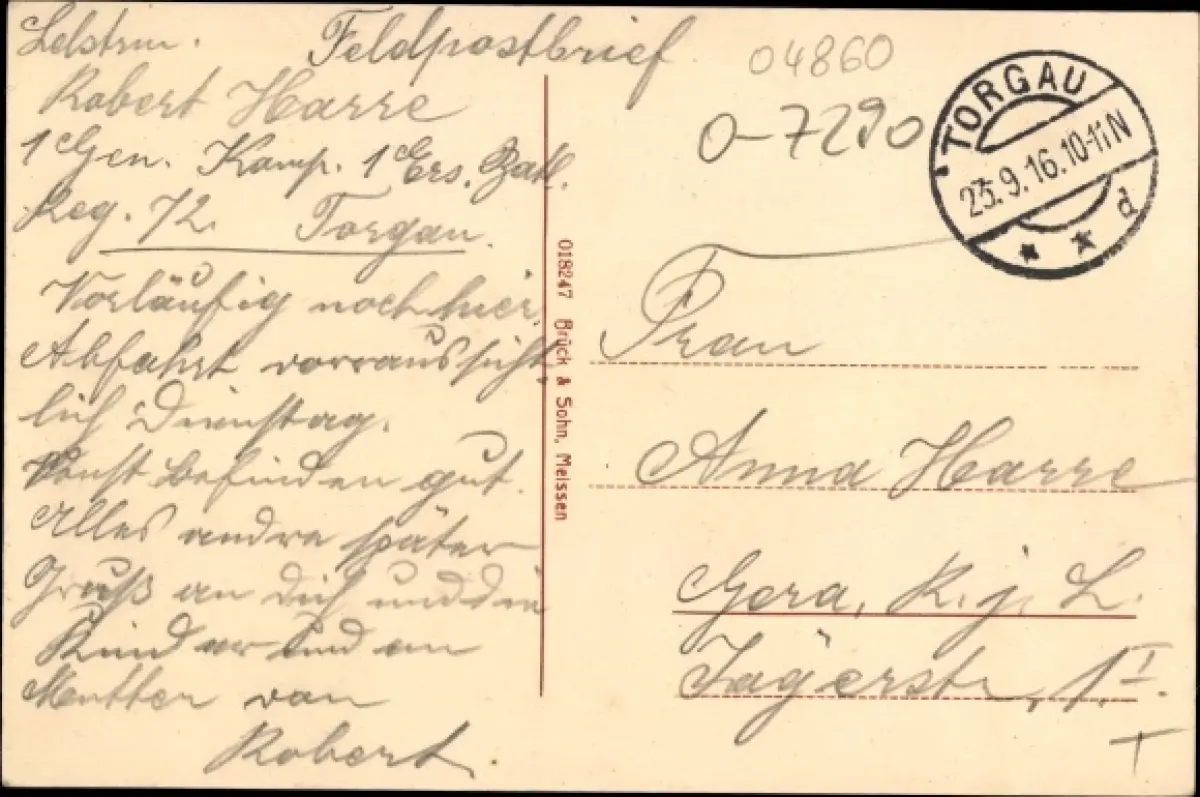 Ldstrm.
Feldpostbrief
Robert Harre
1 Gen. Komp. 1 Ers. Batl.
Reg. 72. Torgau.
Vorläufig noch hier.
Abfahrt vorraussicht-
lich Dienstag.
Sonst befinden gut.
Alles andre später
Gruß an dich und die
Kinder und an
Mutter von
Robert.
018247 Brück & Sohn, Meissen
04860
0-7290
TORGAU
23.9.16.10-11N
* * d
Frau
Anna Harre
Gera, R. j. L.
Jägerstr. 1 I.